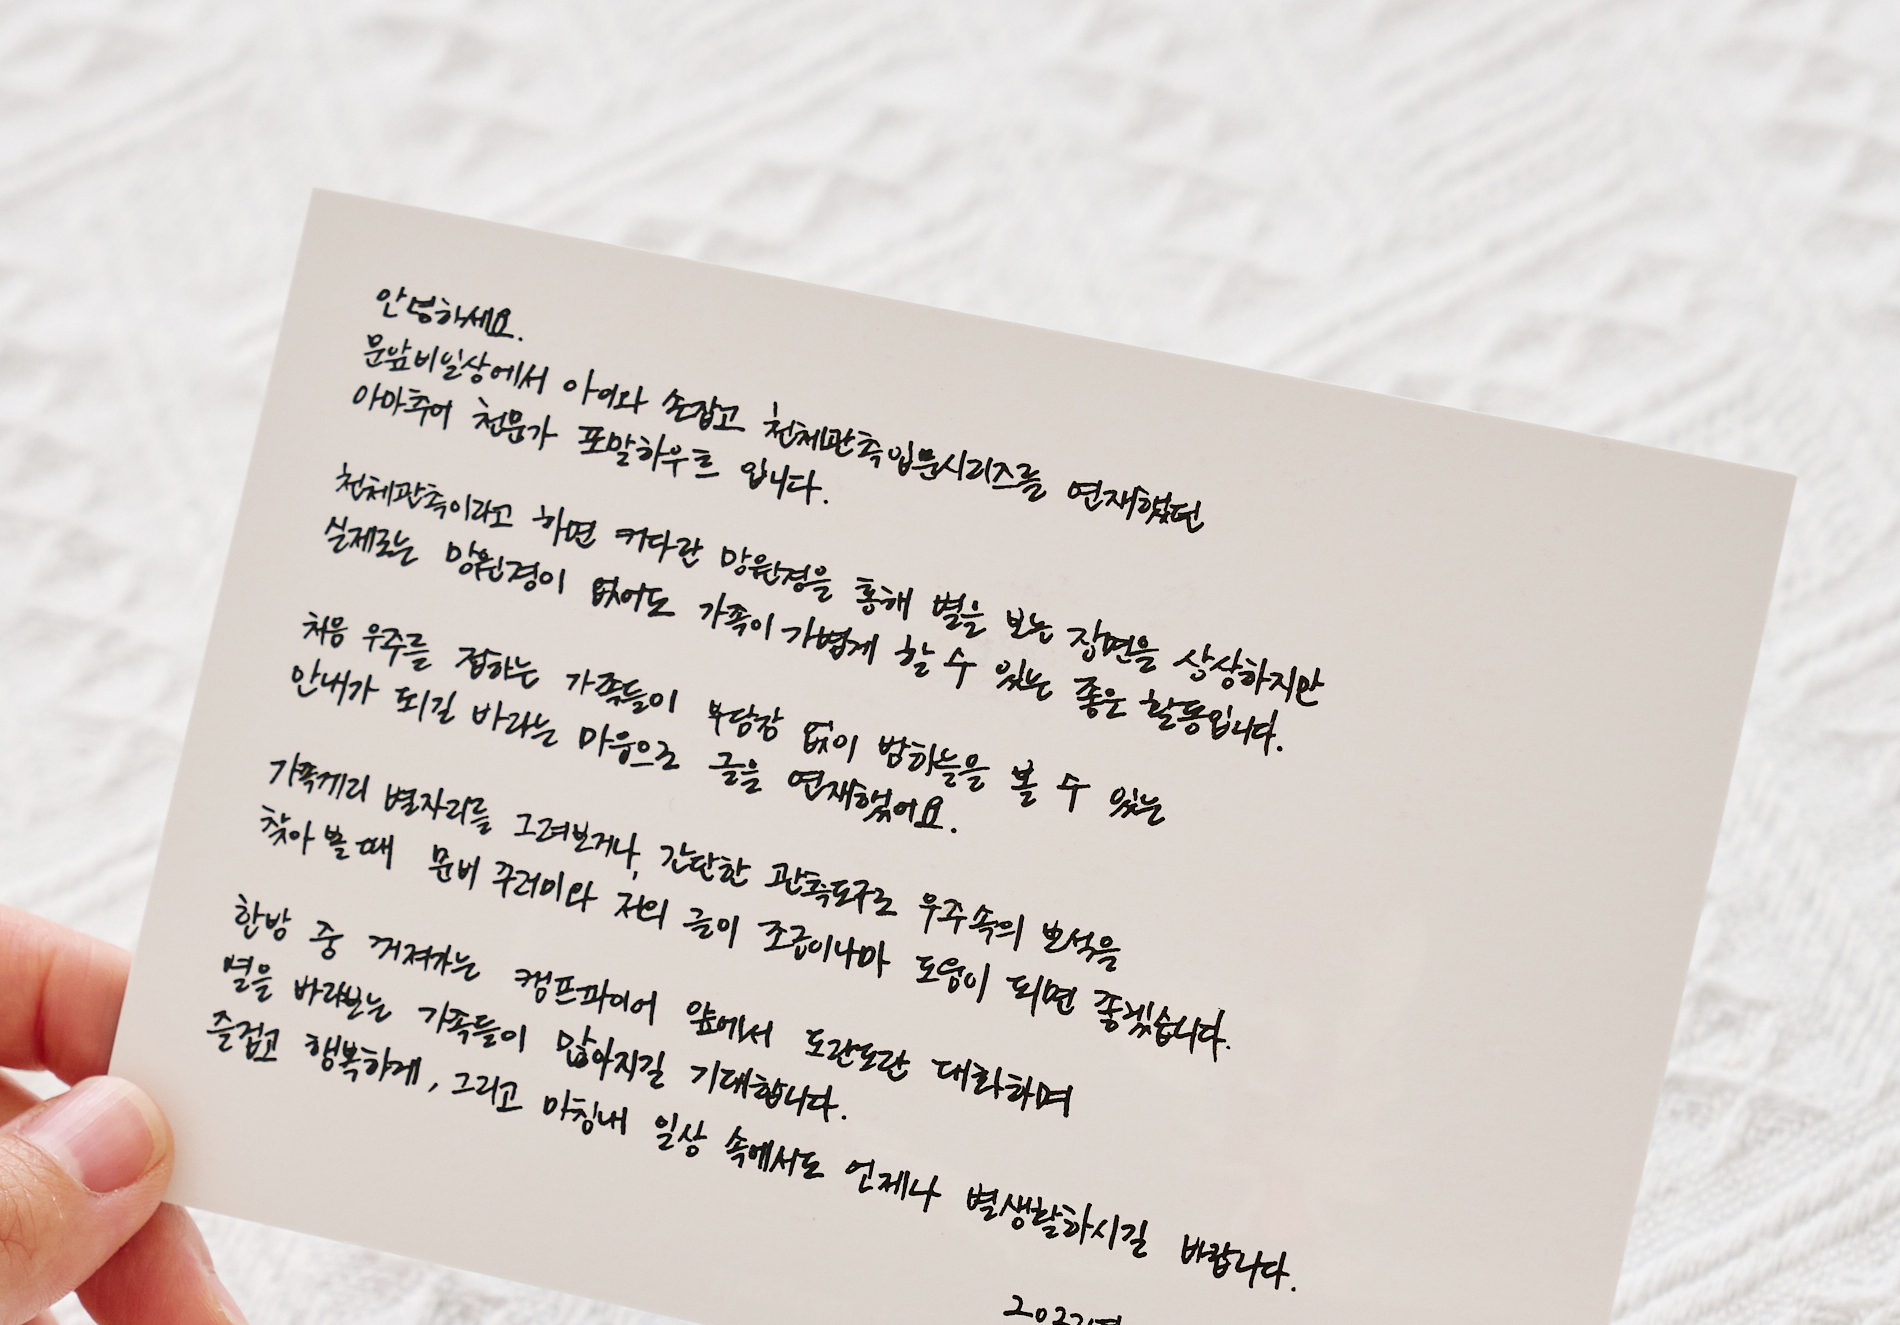 안녕하세요.
문앞비일상에서 아이와 손잡고 천체관측입문시리즈를 연재했던
아마추어 천문가 포말하우트 입니다.
천체관측이라고 하면 커다란 망원경을 통해 별을 보는 장면을 상상하지만
실제로는 망원경이 없어도 가족이 가볍게 할 수 있는 좋은 활동입니다.
처음 우주를 접하는 가족들이 부담감 없이 밤하늘을 볼 수 있는
안내가 되길 바라는 마음으로 글을 연재했어요.
가족끼리 별자리를 그려보거나, 간단한 관측도구로 우주 속의 보석을
찾아 볼 때 문비 꾸러미와 저의 글이 조금이나마 도움이 되면 좋겠습니다.
한밤 중 꺼져가는 캠프파이어 앞에서 도란도란 대화하며
별을 바라보는 가족들이 많아지길 기대합니다.
즐겁고 행복하게, 그리고 마침내 일상 속에서도 언제나 별생활하시길 바랍니다.